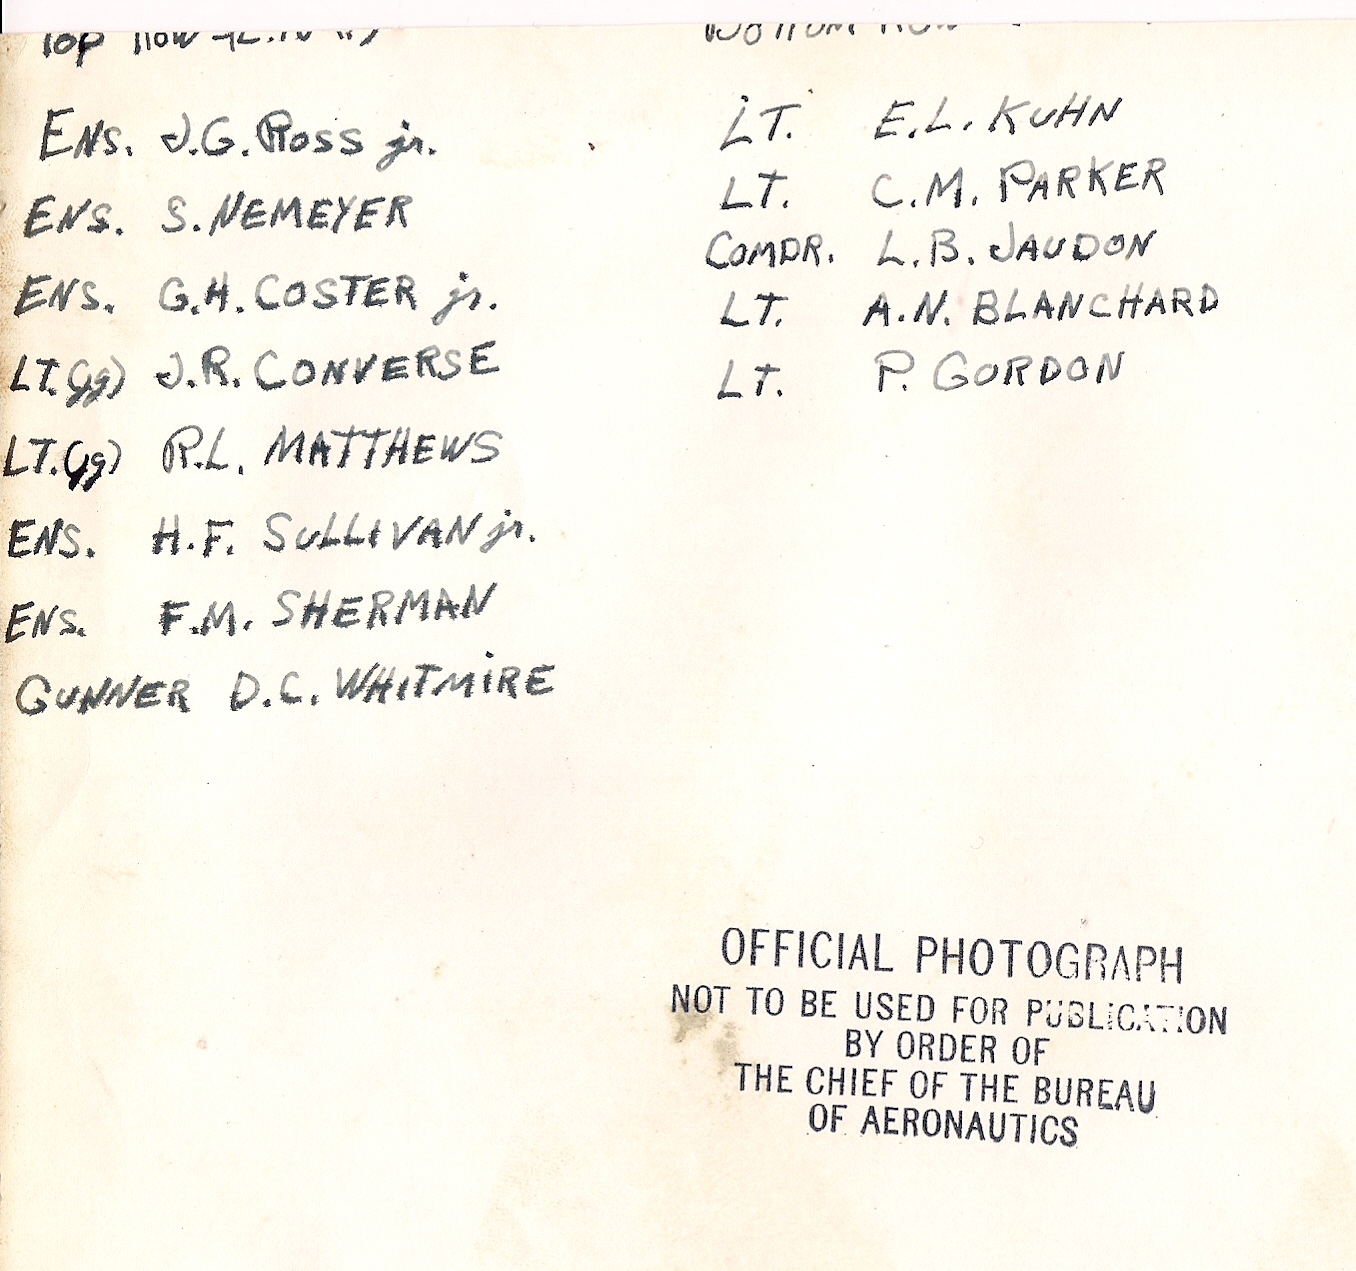 Top Row
Ens. J.G. Ross jr.
ENS. S. NEMEYER
ENS. G.H. COSTER jr.
LT.(jg) J.R. CONVERSE
LT.(jg) R.L. MATTHEWS
ENS. H.F. SULLIVAN jr.
ENS. F.M. SHERMAN
GUNNER D.C. WHITMIRE
Bottom Row
LT. E.L. KUHN
LT. C.M. PARKER
COMDR. L.B. JAUDON
LT. A.N. BLANCHARD
LT. P. GORDON
OFFICIAL PHOTOGRAPH
NOT TO BE USED FOR PUBLICATION
BY ORDER OF
THE CHIEF OF THE BUREAU
OF AERONAUTICS